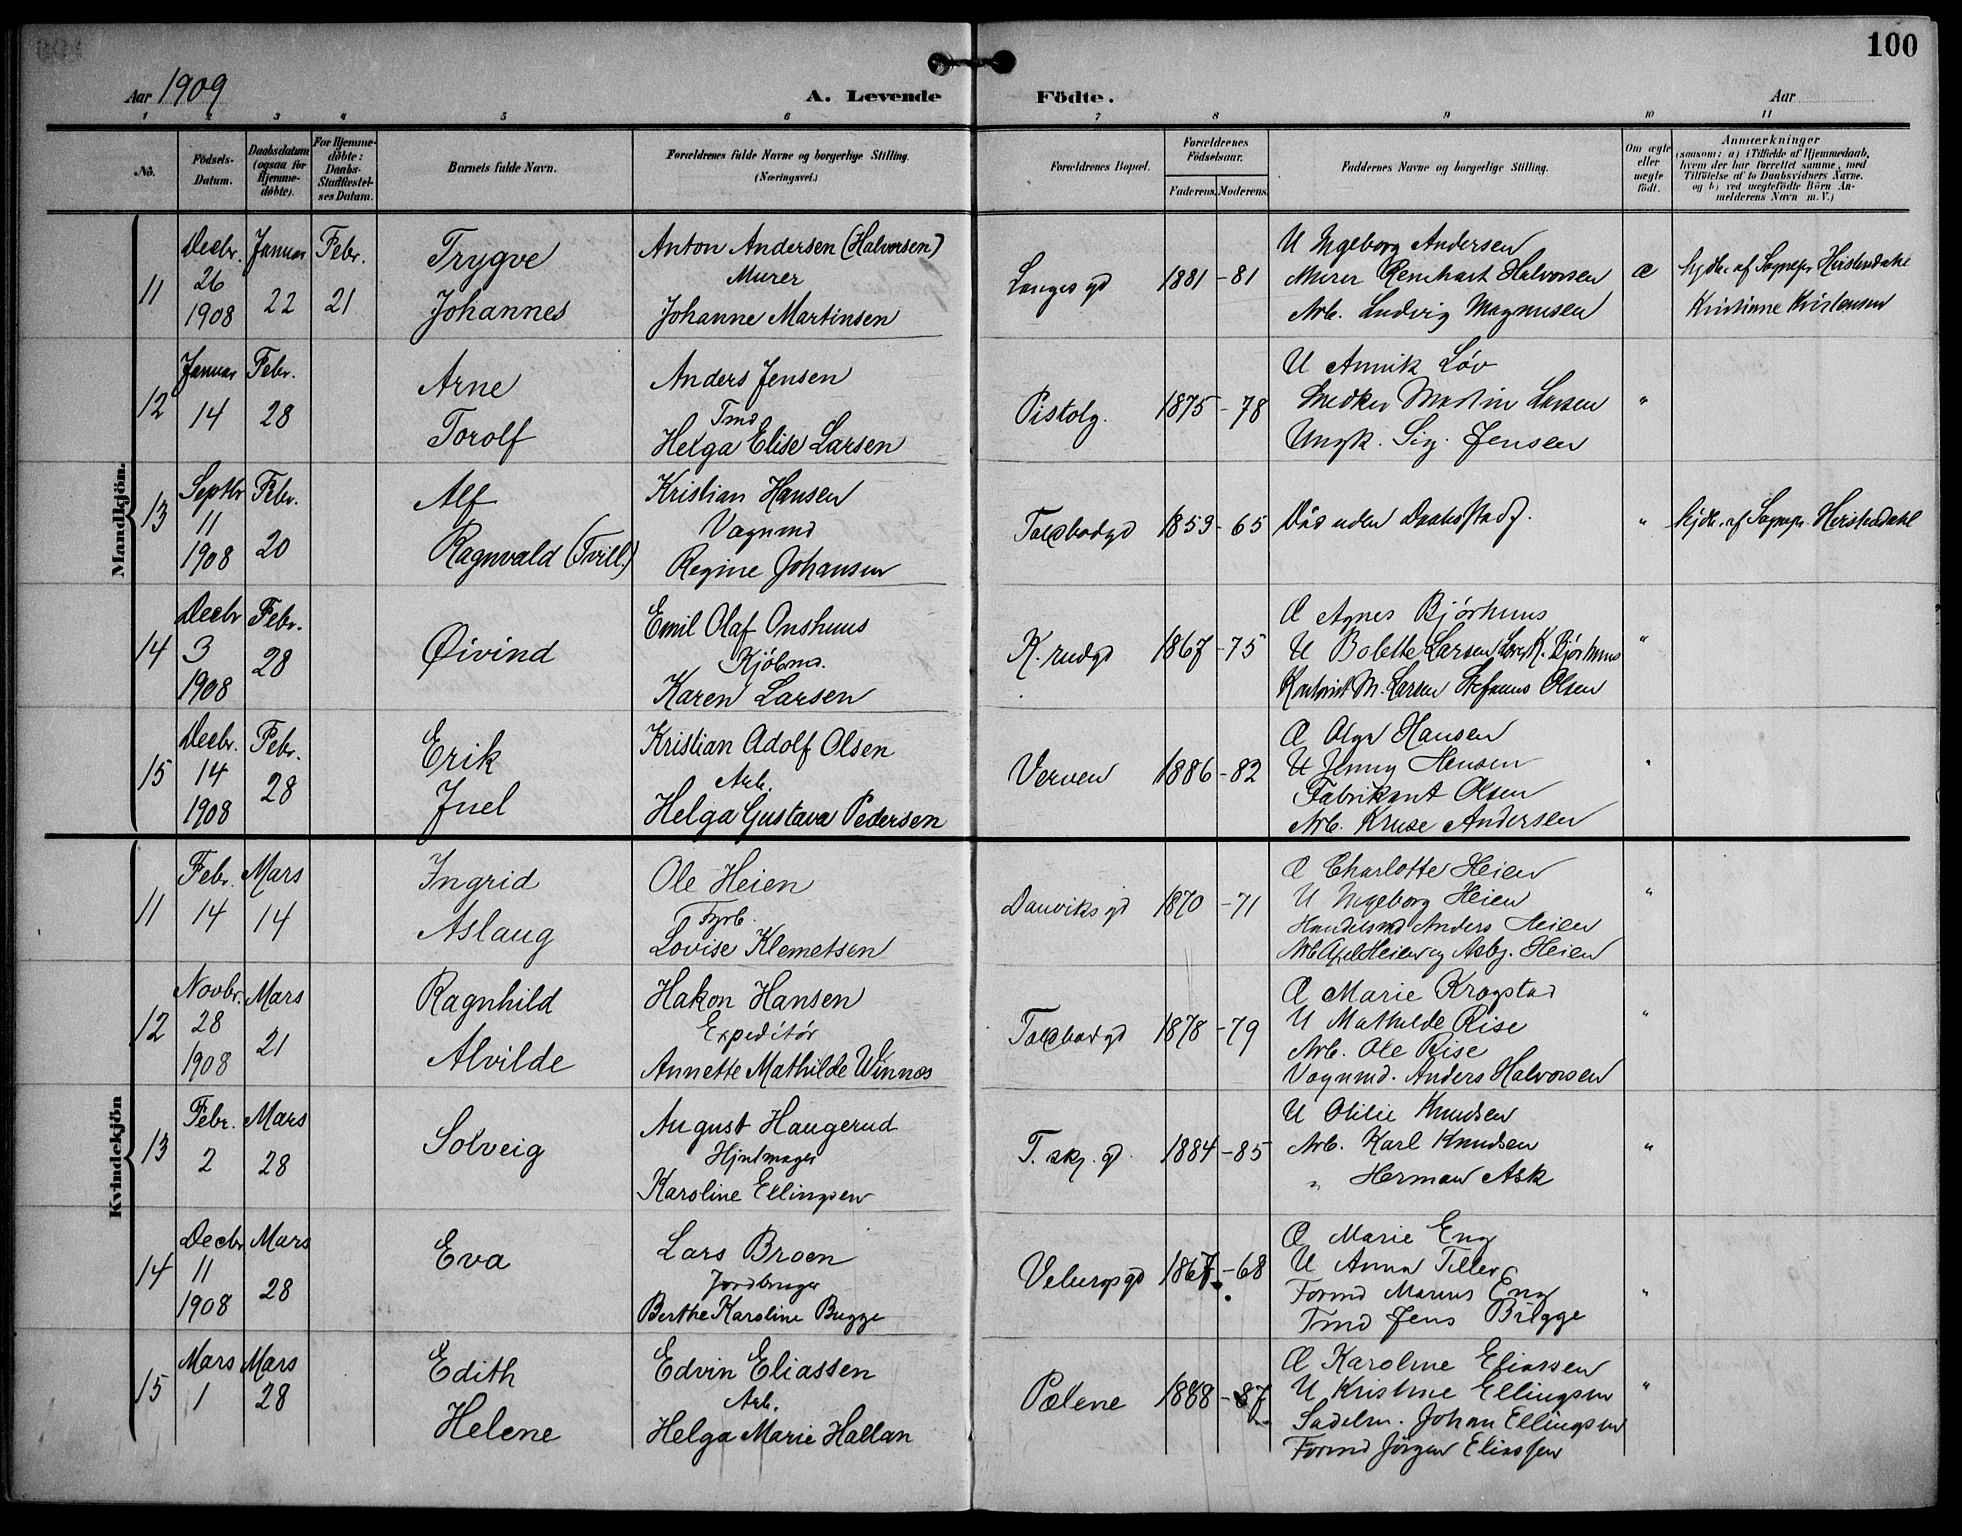 100
Aar 1909
A. Levende Födte.
Aar
1 2 3 4 5 6 7 8 9 10 11
No.
Födsels-Datum.
Daabsdatum (ogsaa for Hjemme-döbte).
For Hjemme-döbte: Daabs-Stadfæstel-ses Datum.
Barnets fulde Navn.
Forældrenes fulde Navne og borgerlige Stilling. (Næringsvei.)
Forældrenes Bopæl.
Forældrenes Födselsaar.
Faderens. Moderens.
Faddernes Navne og borgerlige Stilling.
Om ægte eller uægte födt.
Anmærkninger
(saasom: a) i Tilfælde af Hjemmedaab,
hvem der har forrettet samme, med
Tilföielse af to Daabsvidners Navne.
og b) ved uægtefödte Börn An-
melderens Navn m. V.)
Mandkjön.
11 Decbr. 26 1908 Januar 22 Febr. 21
Trygve
Johannes
Anton Andersen (Halvorsen)
Murer
Johanne Martinsen
Langesgd 1881 - 81
U Ingeborg Andersen
Murer Reinhart Halvorsen
Arb. Ludvig Magnusen
Æ
hjdbt. af Sognepr.
Kristiane Kristensen
12 Januar 14 Febr. 28
Arne
Torolf
Anders Jensen
Tmd
Helga Elise Larsen
Pistolg. 1875 - 78
U Annik Løv
Snedker Martin Larsen
Ungk. Sig. Jensen
"
13 Septbr 11 1908 Febr. 20
Alf
Ragnvald (Tvill.)
Kristian Hansen
Vognmd
Regine Johansen
Toldbodgd 1859 - 65
Død uden Daabsstadf.
"
hjdb. af Sognepr.
14 Decbr 3 1908 Febr. 28
Øivind
Emil Olaf Onshuus
Kjøbmd.
Karen Larsen
K. rudgd 1867 - 75
Æ Agnes Bjørhuus
U Bolette Larsen K. Bjørhuus
M. Larsen Stefanus Olsen
"
15 Decbr. 14 1908 Febr. 28
Erik
Juel
Kristian Adolf Olsen
Arb.
Helga Gustava Pedersen
Verven 1886 - 82
Æ Olga Hansen
U Jenny Hansen
Fabrikant Olsen
Arb. Kruse Andersen
"
Kvindekjön
11 Febr. 14 Mars 14
Ingrid
Aslaug
Ole Heien
Fyrb.
Lovise Klemetsen
Danviksgd 1870 - 71
Æ Charlotte Heien
U Ingeborg Heien
Handelsmd Anders Heien
Arb Axel Heien og Asbj. Heien
"
12 Novbr. 28 1908 Mars 21
Ragnhild
Alvilde
Hakon Hansen
Expeditør
Annette Mathilde Winnæs
Toldbodgd 1878 - 79
Æ Marie Krogstad
U Mathilde Rise
Arb. Ole Rise
Vognmd. Anders Halvorsen
"
13 Febr. 2 Mars 28
Solveig
August Haugerud
Hjulmager
Karoline Ellingsen
T. skj. gd. 1884 - 85
U Otilie Knudsen
Arb. Karl Knudsen
" Herman Ask
"
14 Decbr 11 1908 Mars 28
Eva
Lars Broen
Jordbruger
Berthe Karoline Bugge
1867 - 68
Æ Marie Eng
U Anna Teller
Formd Marius Eng
Tmd Jens Brigge
"
15 Mars 1 Mars 28
Edith
Helene
Edvin Eliassen
Arb.
Helga Marie Hallan
Pælene 1888 - 87
Æ Karoline Eliassen
U Kristine Ellingsen
Sadelm. Johan Ellingsen
Formd Jörgen Eliassen
"